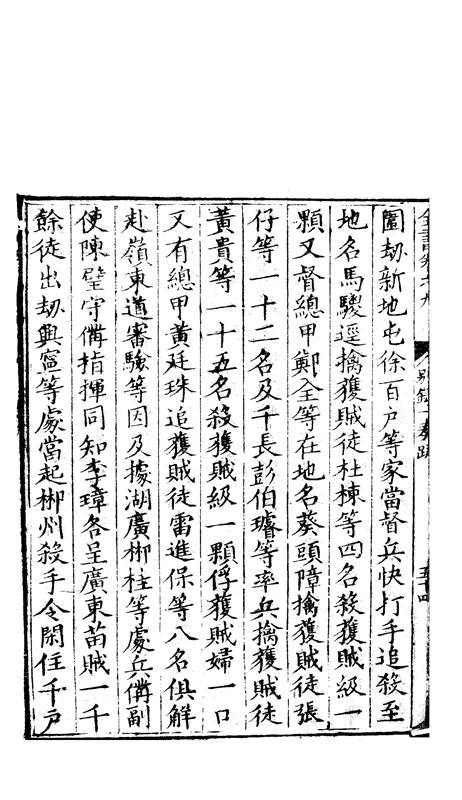 圍刼新地屯徐百户等家當督兵快打手追殺至
地名馬騣逕擒獲賊徒杜棟等四名殺獲賊級一
顆又督總甲鄭全等在地名葵頭障擒獲賊徒張
仔等一十二名及千長彭伯璿等率兵擒獲賊徒
黃貴等一十五名殺獲賊級一顆俘獲賊婦一口
又有總甲黃廷珠追獲賊徒雷進保等八名俱解
赴嶺東道審驗等因及據湖廣郴桂等處兵備副
使陳璧守備指揮同知李璋各呈廣東苗賊一千
餘徒出刼興寧等處當起郴州殺手令閑住千户